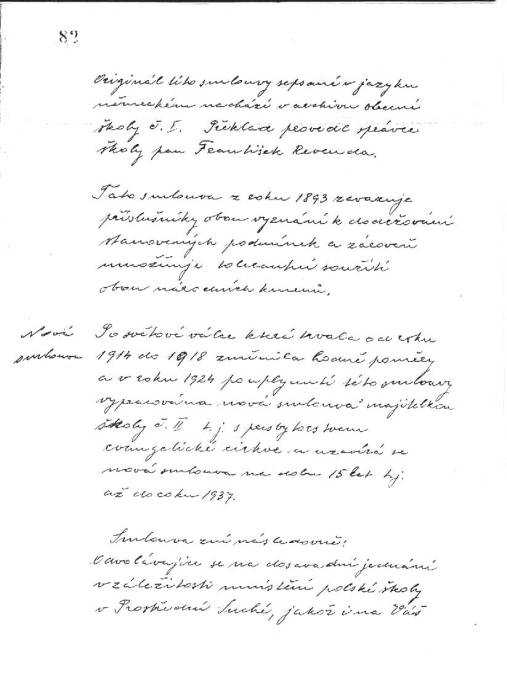 82
Originál této smlouvy sepsané v jazyku
německém nachází v archivu obecní
školy č. I. Překlad provedl správce
školy pan František Revenda.
Tato smlouva z roku 1893 zavazuje
příslušníky obou vyznání k dodržování
stanovených podmínek a zároveň
umožňuje tolerantní soužití
obou národních kmenů.
Nová
smlouva
Po světové válce která trvala od roku
1914 do 1918 změnila hodně poměry
a v roku 1924 po uplynutí této smlouvy
vypracována nová smlouva majitelkou
školy č. II t.j. s presbyterstvem
evangelické církve a uzavírá se
nová smlouva na dobu 15 let t.j.
až do roku 1937.
Smlouva zní následovně:
Odvolávajíce se na dosavadní jednání
v záležitosti umístění polské školy
v Prostřední Suché, jakož i na Váš